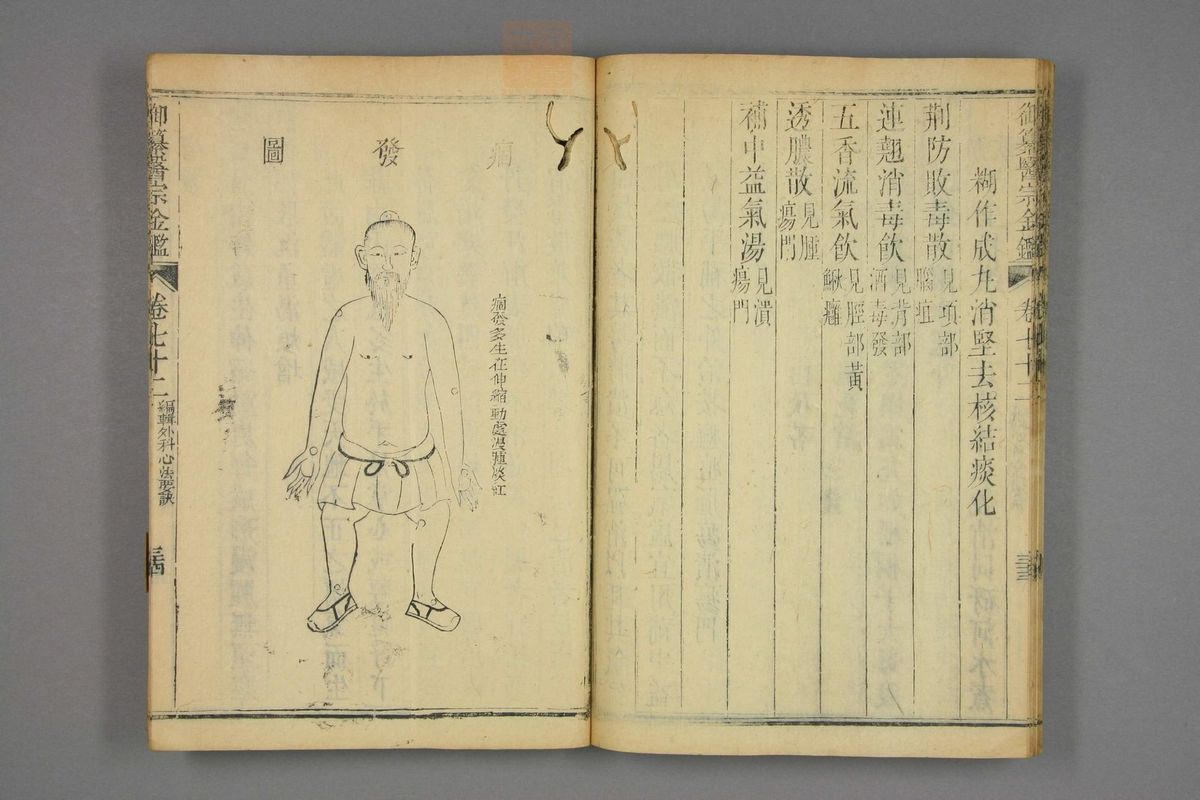 御纂醫宗金鑑 卷七十二 三三
糊作成丸消堅去核結痰化
荆防敗毒散 見項部腦疽
連翹消毒飲 見背部酒毒發
五香流氣飲 見脛部黃鰍癰
透膿散 見腫瘍門
補中益氣湯 見潰瘍門
痼發圖
痼發多生在伸縮動處漫腫淡紅
御纂醫宗金鑑 卷七十二 編輯外科心法要訣 三四